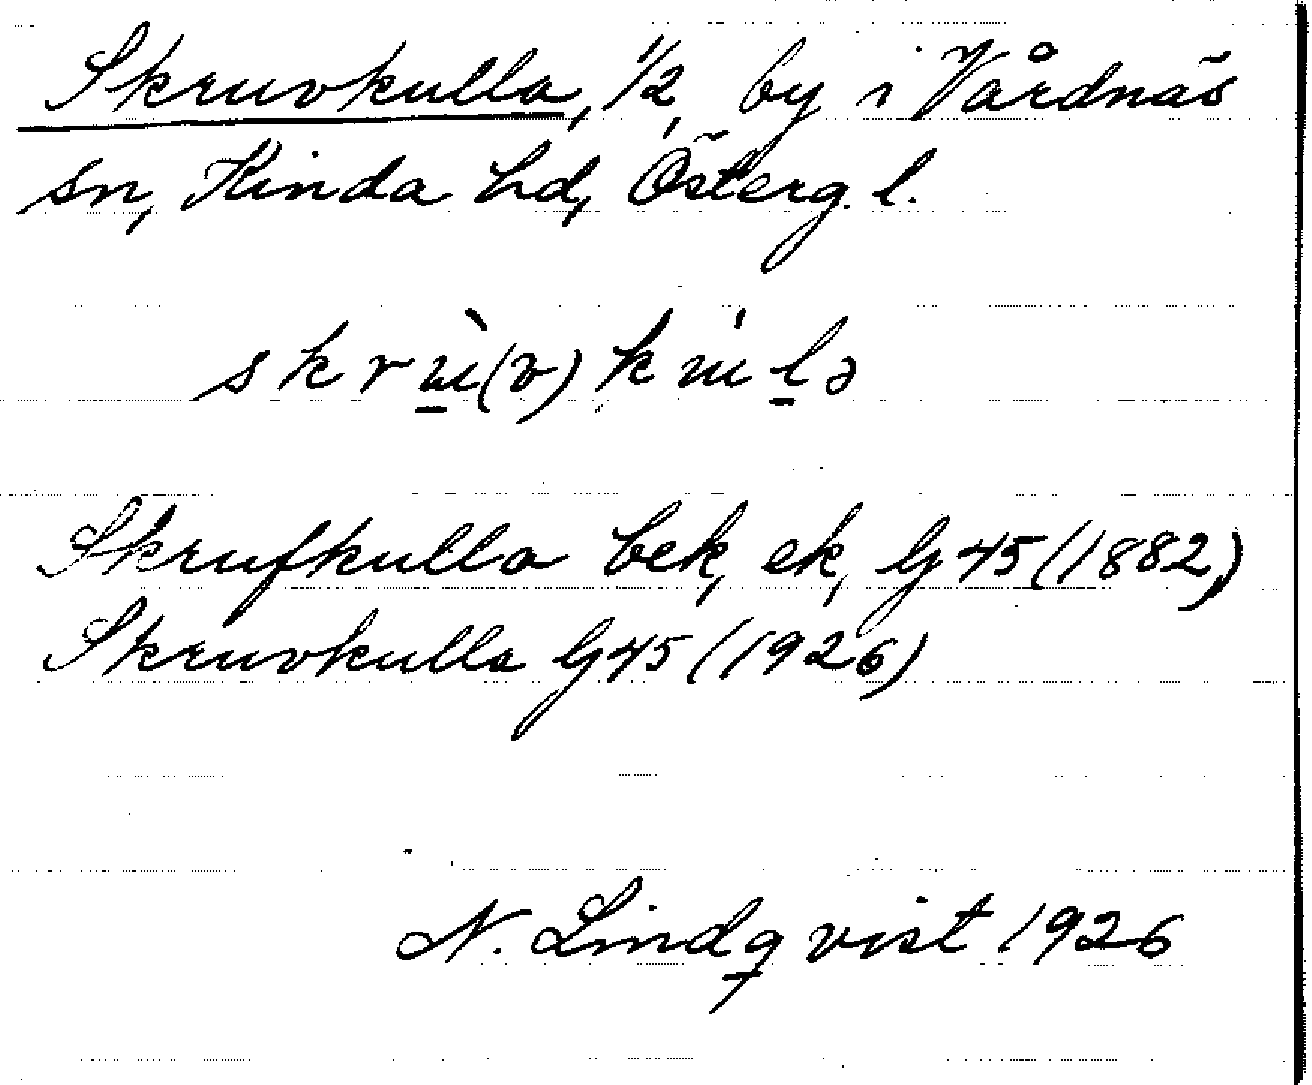 Skruvkulla, 1/2, by i Vårdnäs
sn, Kinda hd, Österg. l.
skrɯ̲̀(v)kɯ́l̲ə
Skrufkulla bek, ek, G45(1882)
Skruvkulla G45(1926)
N. Lindqvist 1926